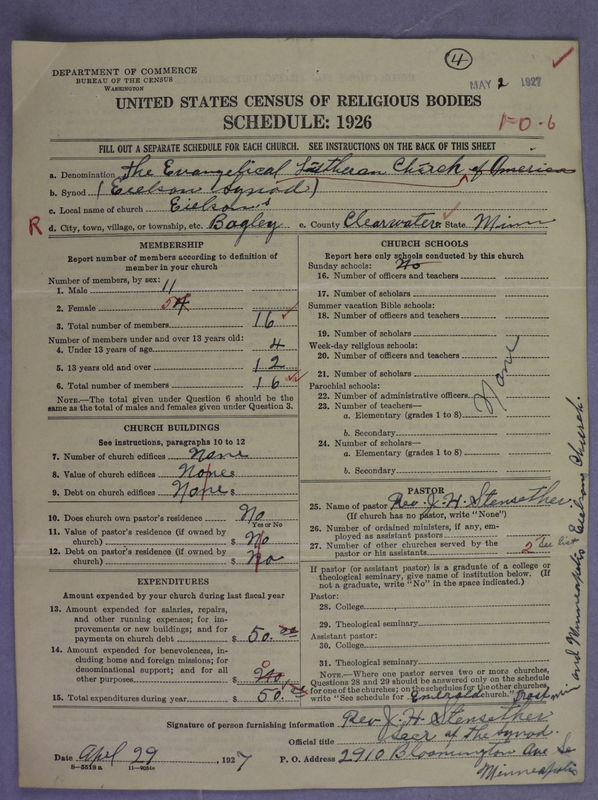 4
DEPARTMENT OF COMMERCE
BUREAU OF THE CENSUS
WASHINGTON
MAY 2 1927
UNITED STATES CENSUS OF RELIGIOUS BODIES
SCHEDULE: 1926
1-0-6
FILL OUT A SEPARATE SCHEDULE FOR EACH CHURCH. SEE INSTRUCTIONS ON THE BACK OF THIS SHEET
a. Denomination The Evangelical Lutheran Church of America
b. Synod (Eielsen Synod)
c. Local name of church Eielsen's
R d. City, town, village, or township, etc. Bagley e. County Clearwater f. State Minn
MEMBERSHIP
Report number of members according to definition of
member in your church
Number of members, by sex:
1. Male 11
2. Female 5
3. Total number of members 16
Number of members under and over 13 years old:
4. Under 13 years of age 4
5. 13 years old and over 12
6. Total number of members 16
NOTE.—The total given under Question 6 should be the
same as the total of males and females given under Question 3.
CHURCH BUILDINGS
See instructions, paragraphs 10 to 12
7. Number of church edifices None
8. Value of church edifices None $
9. Debt on church edifices None $
10. Does church own pastor's residence No
Yes or No
11. Value of pastor's residence (if owned by
church) $ No
12. Debt on pastor's residence (if owned by
church) $ No
EXPENDITURES
Amount expended by your church during last fiscal year
13. Amount expended for salaries, repairs,
and other running expenses; for im-
provements or new buildings; and for
payments on church debt $ 50.00
14. Amount expended for benevolences, in-
cluding home and foreign missions; for
denominational support; and for all
other purposes $ 0
15. Total expenditures during year $ 50
CHURCH SCHOOLS
Report here only schools conducted by this church
Sunday schools: No
16. Number of officers and teachers
17. Number of scholars
Summer vacation Bible schools:
18. Number of officers and teachers
19. Number of scholars
Week-day religious schools:
20. Number of officers and teachers
21. Number of scholars
None
Parochial schools:
22. Number of administrative officers
23. Number of teachers—
a. Elementary (grades 1 to 8)
b. Secondary
24. Number of scholars—
a. Elementary (grades 1 to 8)
b. Secondary
PASTOR
25. Name of pastor Rev. J. H. Stensether
(If church has no pastor, write "None")
26. Number of ordained ministers, if any, em-
ployed as assistant pastors
27. Number of other churches served by the
pastor or his assistants 2 See list
If pastor (or assistant pastor) is a graduate of a college or
theological seminary, give name of institution below. (If
not a graduate, write "No" in the space indicated.)
Pastor:
28. College
29. Theological seminary
Assistant pastor:
30. College
31. Theological seminary
NOTE.—Where one pastor serves two or more churches,
Questions 28 and 29 should be answered only on the schedule
for one of the churches; on the schedules for the other churches,
write "See schedule for Emerald church."
and Minneapolis Eielsen Church.
Signature of person furnishing information Rev. J. H. Stensether
Official title Secr of the Synod.
Date April 29, 1927 P. O. Address 2910 Bloomington Ave So
Minneapolis
8-5518a 11-9034a